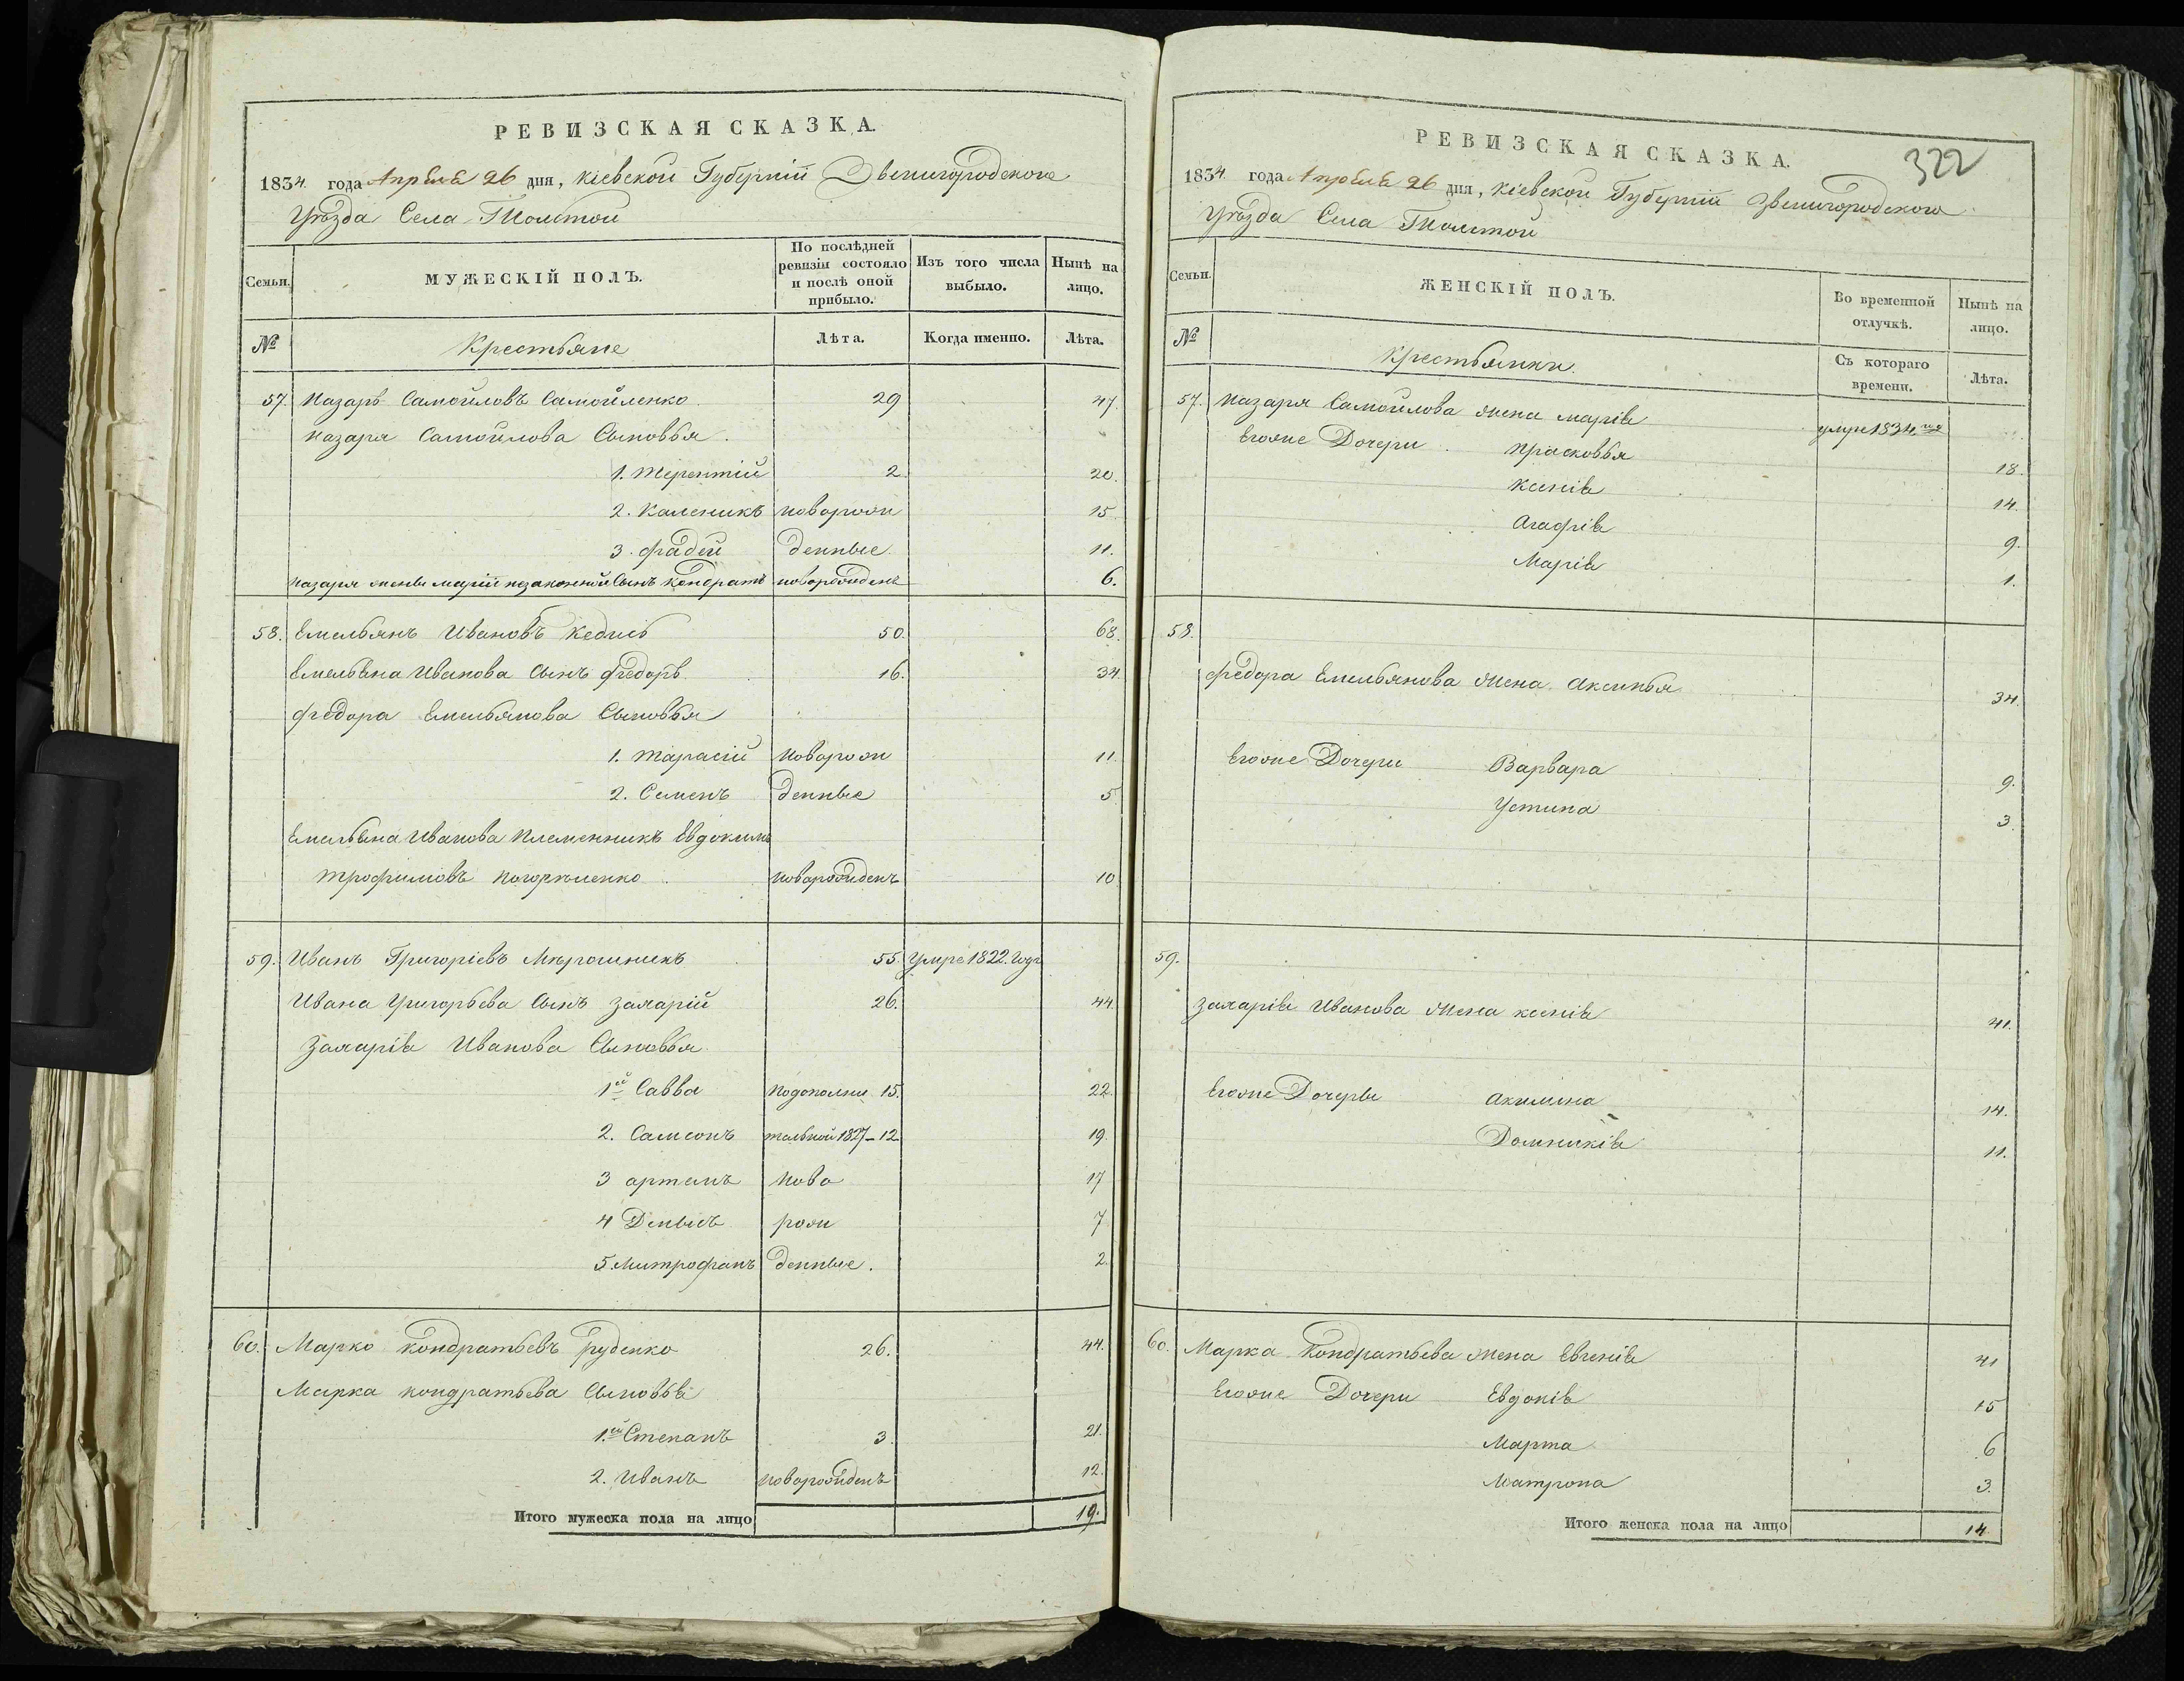 РЕВИЗСКАЯ СКАЗКА.
1834 года Апреля 26 дня, Кіевской Губерніи Звенигородского
Уѣзда Села Толстой
Семьи.
МУЖЕСКІЙ ПОЛЪ.
По послѣдней ревизіи состояло и послѣ оной прибыло.
Изъ того числа выбыло.
Нынѣ на лицо.
№
Крестьяне
Лѣта.
Когда именно.
Лѣта.
57. Назаръ Самойловъ Самойленко 29 47.
Назара Самойлова Сыновья.
1. Терентій 2 20.
2. Каленикъ новорож 15
3. Фадей денные. 11.
Назара жены Маріи незаконной Сынъ Кондратъ новорожденъ 6.
58. Емельянъ Ивановъ Кедисъ 50. 68.
Емельяна Иванова Сынъ Федоръ 16. 34.
Федора Емельянова Сыновья
1. Тарасій новорож 11.
2. Семенъ денные 5
Емельяна Иванова Племенникъ Евдокимъ
Трофимовъ новорожденъ 10
59. Иванъ Григоріевъ Мѣрошникъ 55. Умре 1822. Года
Ивана Григорьева Сынъ Захарій 26. 44.
Захарія Иванова Сыновья
1й Савва подополни 15. 22.
2. Самсонъ тельной 1827 - 12 19.
3 Артемъ ново 17
4 Денысъ рож 7
5. Митрофанъ денные. 2.
60. Марко Кондратьевъ Руденко 26. 44.
Марка Кондратьева Сыновья
1.й Степанъ 3. 21.
2. Иванъ новорожденъ 12.
Итого мужеска пола на лицо 19.
322
РЕВИЗСКАЯ СКАЗКА.
1834 года Апреля 26 дня, Кіевской Губерніи Звенигородского
Уѣзда Села Толстой
Семьи.
ЖЕНСКІЙ ПОЛЪ.
Во временной отлучкѣ.
Нынѣ на лицо.
№
Крестьянки.
Съ котораго времени.
Лѣта.
57. Назара Самойлова жена Марія умре 1834 года
Егоже Дочери Прасковья 18.
Ксенія 14.
Агафія 9.
Марія 1.
58.
Федора Емельянова жена Аксинья 34.
Егоже Дочери Варвара 9.
Устина 3.
59.
Захарія Иванова жена Ксенія 41.
Егоже Дочеры Акилина 14.
Домникія 11.
60. Марка Кондратьева жена Евгенія 41
Егоже Дочери Евдокія 15
Марта 6
Матрона 3.
Итого женска пола на лицо 14.